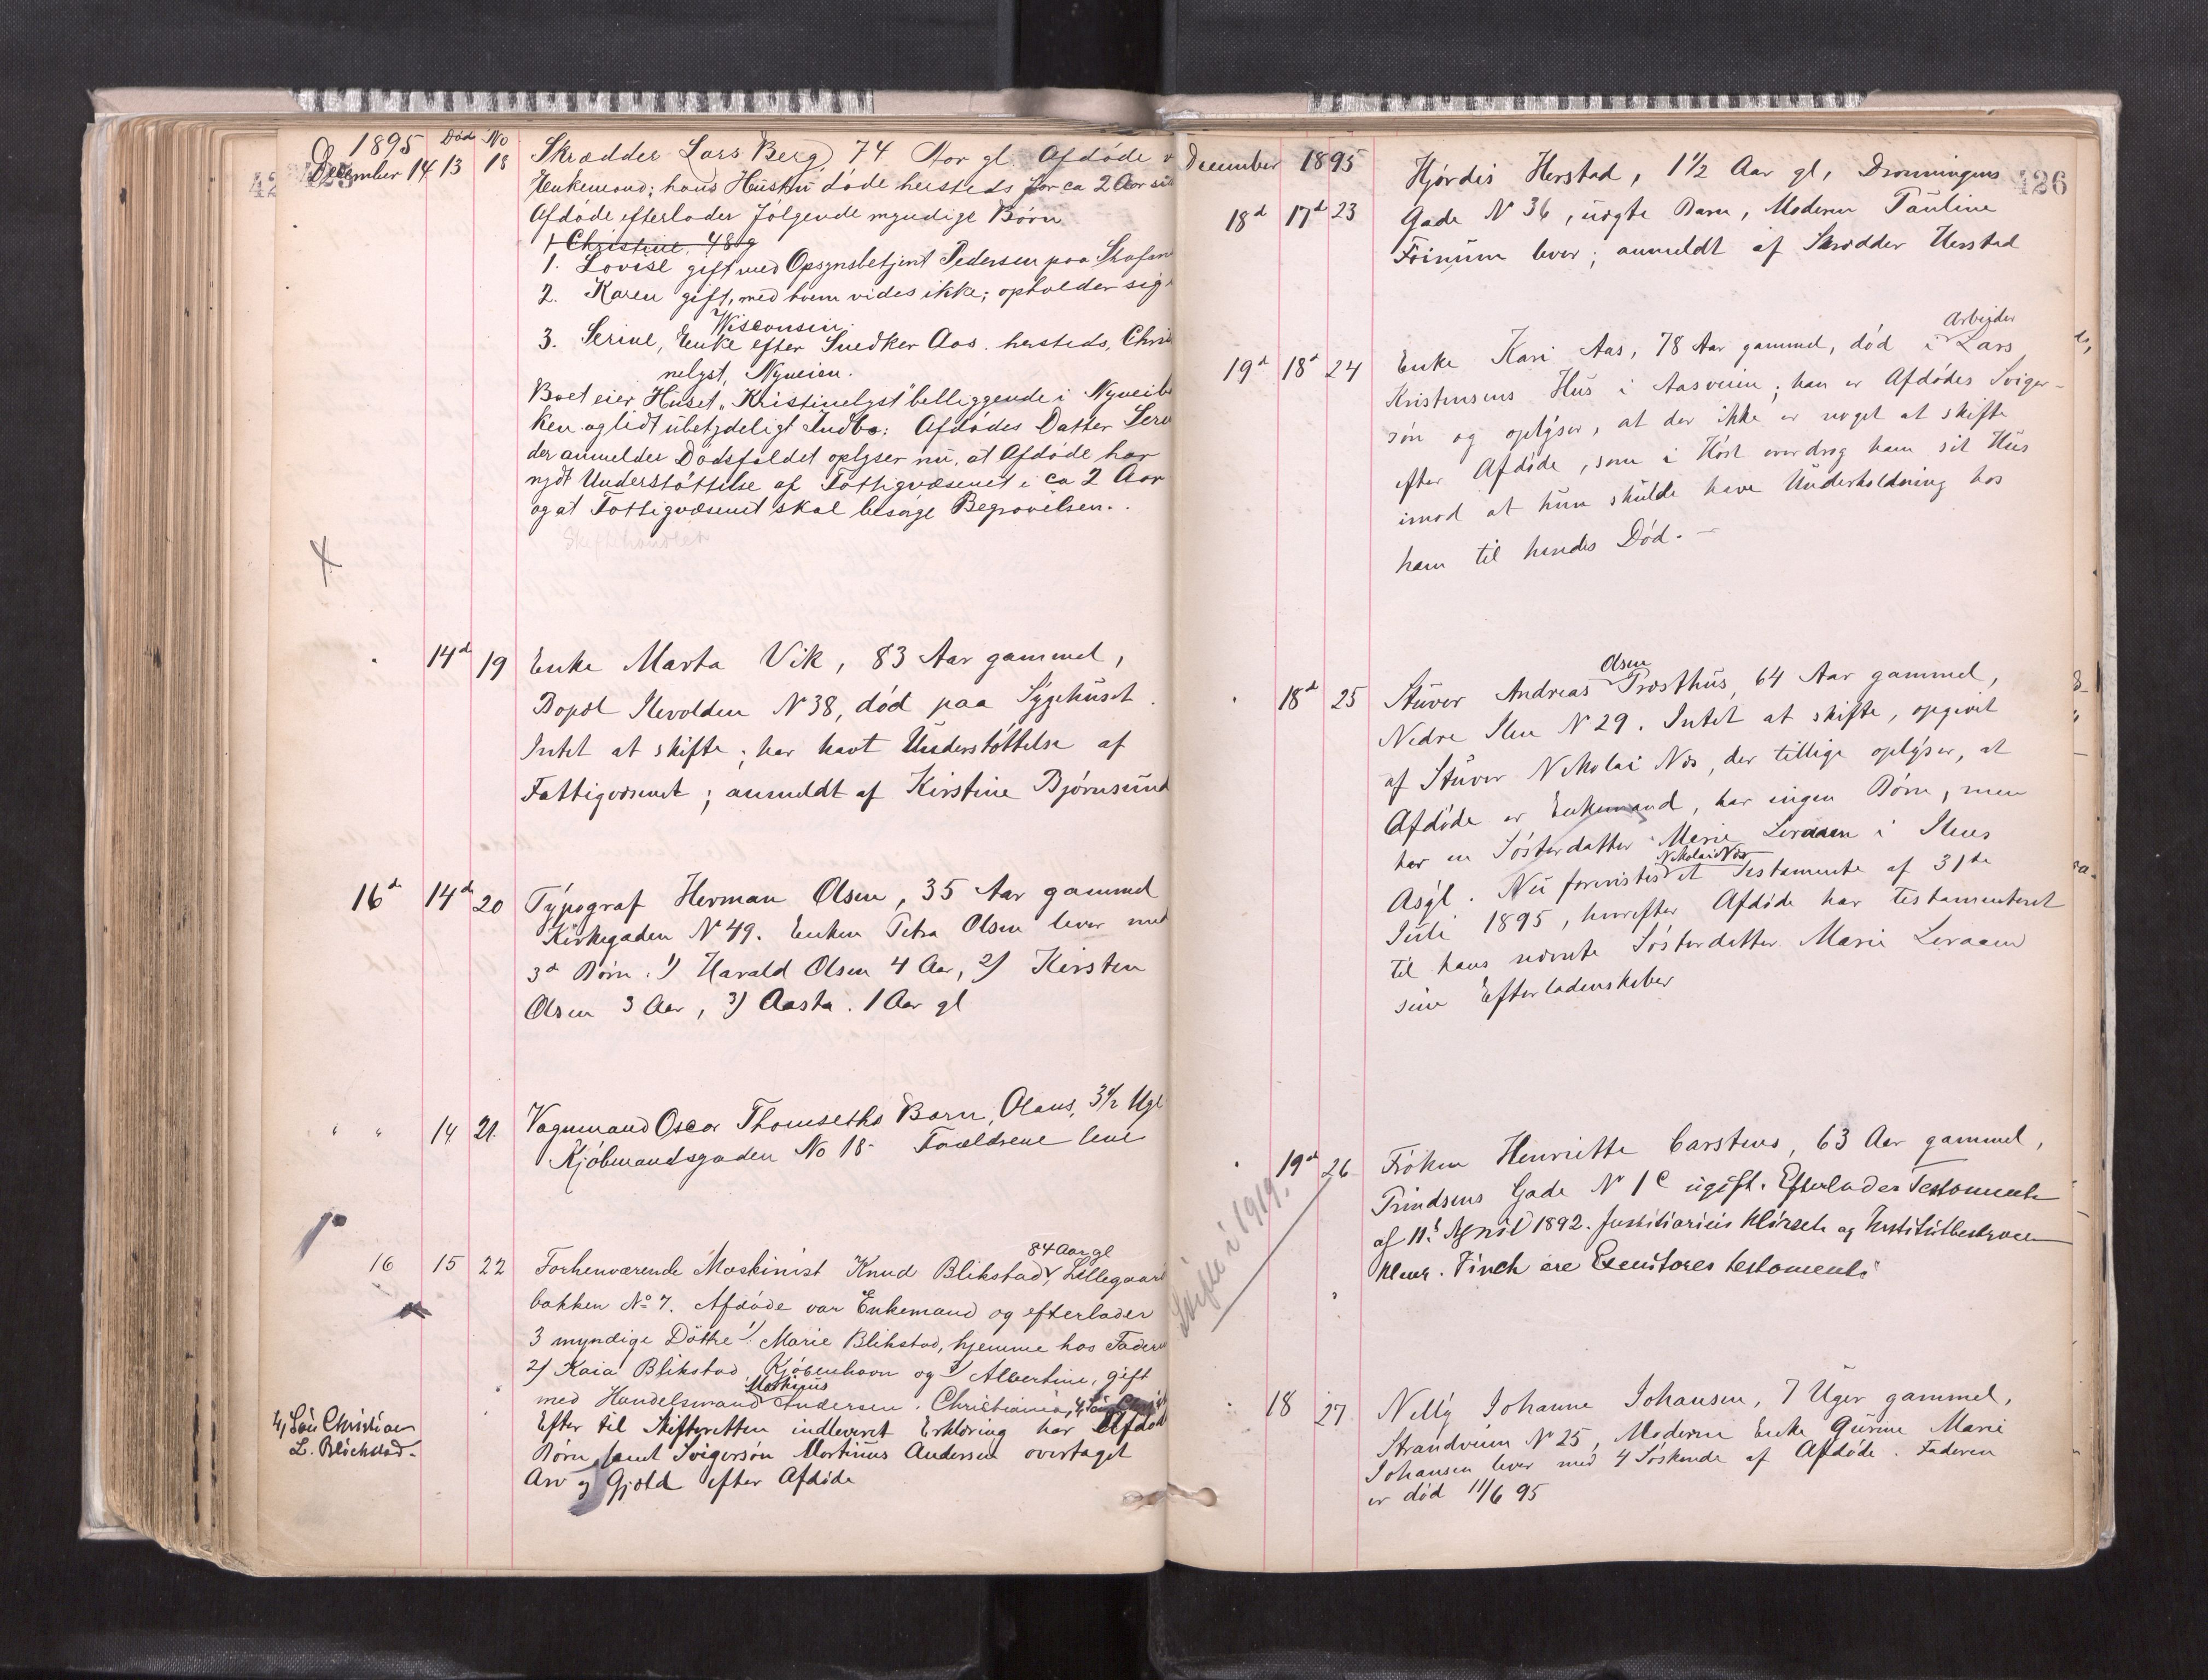 1895 Död No
425
December 14 13 18 Skrædder Lars Berg 74 Aar gl. Afdöde v
Enkemand; hans Hustru döde hersteds for ca 2 Aar si
Afdöde efterlader følgende myndige Börn
1 Christine, 48 g
1. Lovise gift med Opsynsbetjent Pedersen paa
2. Karen gift, med hvem vides ikke; opholder sig i
Wisconsin.
3. Serine, Enke efter Snedker Aas. hersteds, Chris
nelyst, Nyveien.
Boet eier Huset „Kristinelyst" belliggende i Nyveib
ken og lidt ubetydeligt Indbo: Afdödes Datter Seri
der anmelder Dödsfaldet oplyser nu, at Afdöde har
nydt Understöttelse af Fattigvæsenet i ca 2 Aar
og at Fattigvæsenet skal besörge Begravelsen.
14d 19 Enke Marta Vik, 83 Aar gammel,
Bopæl Ilevolden N 38, död paa Sygehuset.
Intet at skifte; har havt Understöttelse af
Fattigvæsenet; anmeldt af Kirstine Björnsund
16d 14d 20 Typograf Herman Olsen, 35 Aar gammel
Kirkegaden N 49. Enken Petra Olsen lever med
3d Börn. 1) Harald Olsen 4 Aar, 2) Kirsten
Olsen 3 Aar, 3) Aasta. 1 Aar gl
" " 14 21. Vognmand Oscar Thomseths Barn, Olaus, 3½ Ugl
Kjöbmandsgaden No 18. Forældrene leve
84 Aar gl
16 15 22 Forhenværende Maskinist Knud Blikstad, Lillegaard
bakken No 7. Afdöde var Enkemand og efterlader
3 myndige Döttre 1) Marie Blikstad, hjemme hos Faderen
2) Kaia Blikstad Kjöbenhavn og 3) Albertine, gift
Martinus
med Handelsmand Andersen. Christiania,
4, Søn Christian
L. Blichstad.
Efter til Skifteretten indleveret Erklæring har Afdöd
Börn samt Svigersön Martinus Andersen overtaget
Arv og Gjæld efter Afdöde
December 1895
426
Hjördis Herstad, 1½ Aar gl, Dronningens
18d 17d 23 Gade N 36, uægte Barn, Moderen Pauline
lever; anmeldt af Skrædder Herstad
Arbeider
19d 18d 24 Enke Kari Aas, 78 Aar gammel, död i Lars
Kristensens Hus i Aasveien; han er Afdödes Sviger-
sön og oplyser, at der ikke er noget at skifte
efter Afdöde, som i Höst overdrog ham sit Hus
imod at hun skulde have Underholdning hos
ham til hendes Död. —
Olsen
18d 25 Stuver Andreas Præsthus, 64 Aar gammel,
Nedre Ilen N 29. Intet at skifte, opgivet
af Stuver Nikolai Næs, der tillige oplyser, at
Afdöde er Enkemand, har ingen Börn, men
har en Sösterdatter Marie Leraaen i Ilens
Nikolai Næs
Asyl. Nu foreviste et Testamente af 31te
Juli 1895, hvorefter Afdöde har testamenteret
til hans nævnte Sösterdatter Marie Leraaen
sine Efterladenskaber
Skifte i 1919.
19d 26 Fröken Henriette Carstens, 63 Aar gammel,
Prindsens Gade N 1c ugift. Efterlader Testamente
af 11te April 1892. Justitiarius Klüwer og
Klüwer. Finch ere Executores testamenti
18 27 Nelly Johanne Johansen, 7 Uger gammel,
Strandveien N 25, Moderen Enke Gurine Marie
Johansen lever med 4 Söskende af Afdöde. Faderen
er död 11/6 95